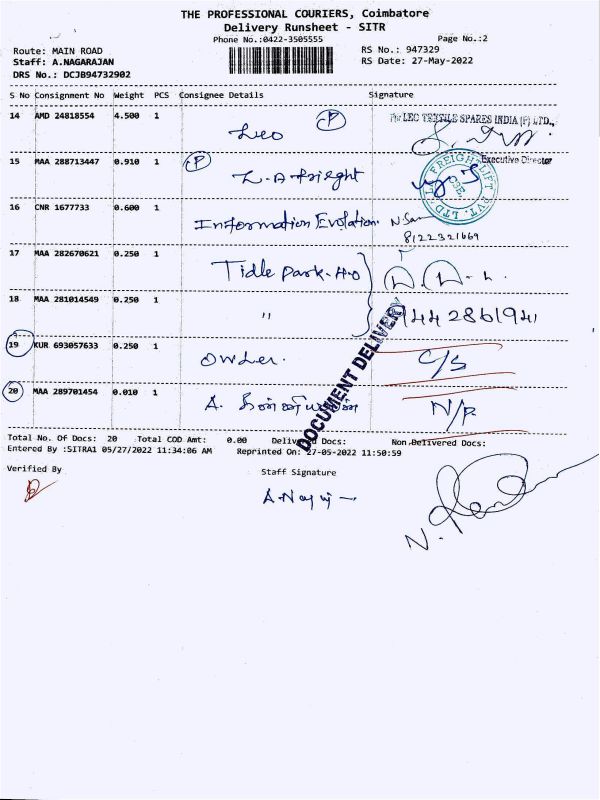 THE PROFESSIONAL COURIERS, Coimbatore
Delivery Runsheet - SITR
Phone No.:0422-3505555 Page No.:2
Route: MAIN ROAD RS No.: 947329
Staff: A.NAGARAJAN RS Date: 27-May-2022
DRS No.: DCJB94732902
S No Consignment No Weight PCS Consignee Details Signature
14 AMD 24818554 4.500 1 Leo P For LEO TEXTILE SPARES INDIA (P) LTD.,
Executive Director
15 MAA 288713447 0.910 1 P L.A freight
16 CNR 1677733 0.600 1 Information Evolation N.Sam
8122321669
17 MAA 282670621 0.250 1 Tidle Park-H.O
18 MAA 281014549 0.250 1 " 9442861941
19 KUR 693057633 0.250 1 owner. C/S
20 MAA 289701454 0.010 1 A. N/R
DOCUMENT DELIVERY
Total No. Of Docs: 20 Total COD Amt: 0.00 Delivered Docs: Non Delivered Docs:
Entered By :SITRA1 05/27/2022 11:34:06 AM Reprinted On: 27-05-2022 11:50:59
Verified By Staff Signature